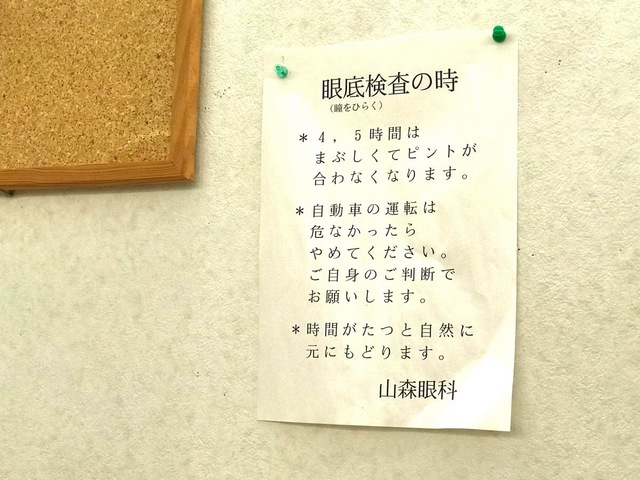 眼底検査の時
（瞳をひらく）
＊４，５時間は
まぶしくてピントが
合わなくなります。
＊自動車の運転は
危なかったら
やめてください。
ご自身のご判断で
お願いします。
＊時間がたつと自然に
元にもどります。
山森眼科